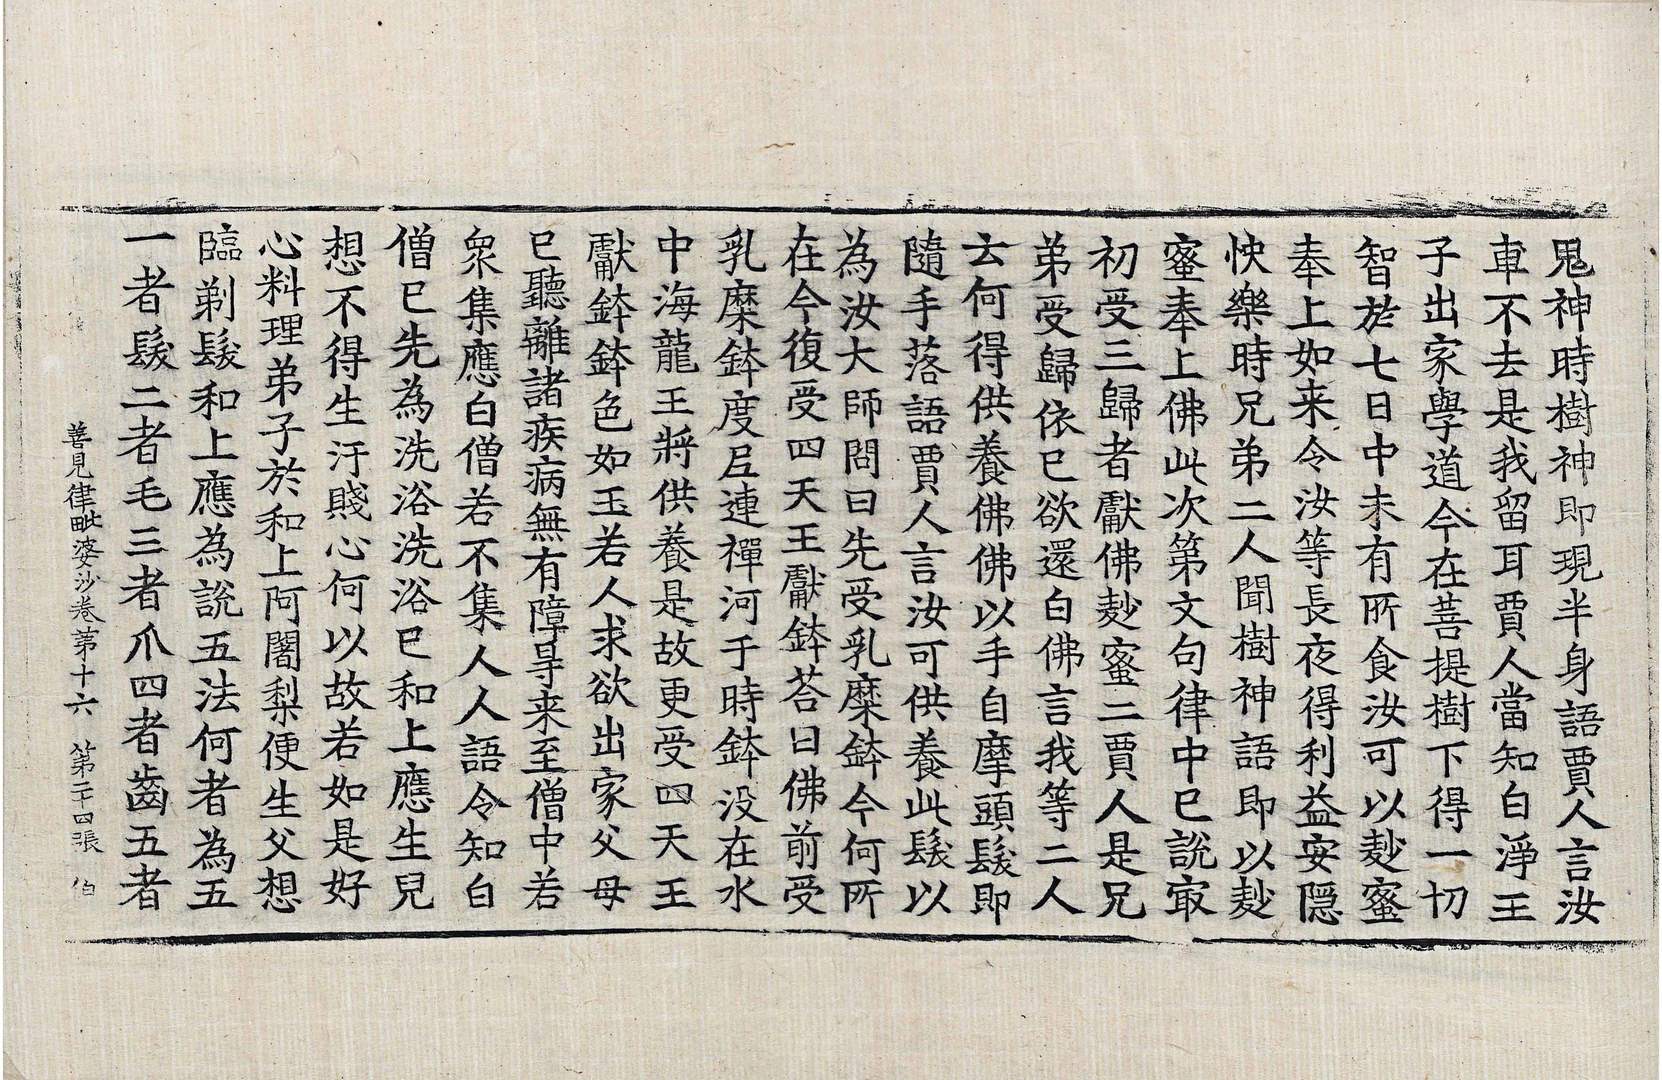 鬼神時樹神即現半身語賈人言汝
車不去是我留耳賈人當知白淨王
子出家學道今在菩提樹下得一切
智於七日中未有所食汝可以麨蜜
奉上如来令汝等長夜得利益安隱
快樂時兄弟二人聞樹神語即以麨
蜜奉上佛此次第文句律中已說㝡
初受三歸者獻佛麨蜜二賈人是兄
弟受歸依已欲還白佛言我等二人
云何得供養佛佛以手自摩頭髮即
隨手落語賈人言汝可供養此髮以
為汝大師問曰先受乳糜鉢今何所
在今復受四天王獻鉢荅曰佛前受
乳糜鉢度尼連禪河于時鉢没在水
中海龍王將供養是故更受四天王
獻鉢鉢色如玉若人求欲出家父母
已聽離諸疾病無有障㝵来至僧中若
衆集應白僧若不集人人語令知白
僧已先為洗浴洗浴已和上應生兒
想不得生汙賤心何以故若如是好
心料理弟子於和上阿闍梨便生父想
臨剃髮和上應為說五法何者為五
一者髮二者毛三者爪四者齒五者
善見律毗婆沙卷第十六　第二十四張　伯